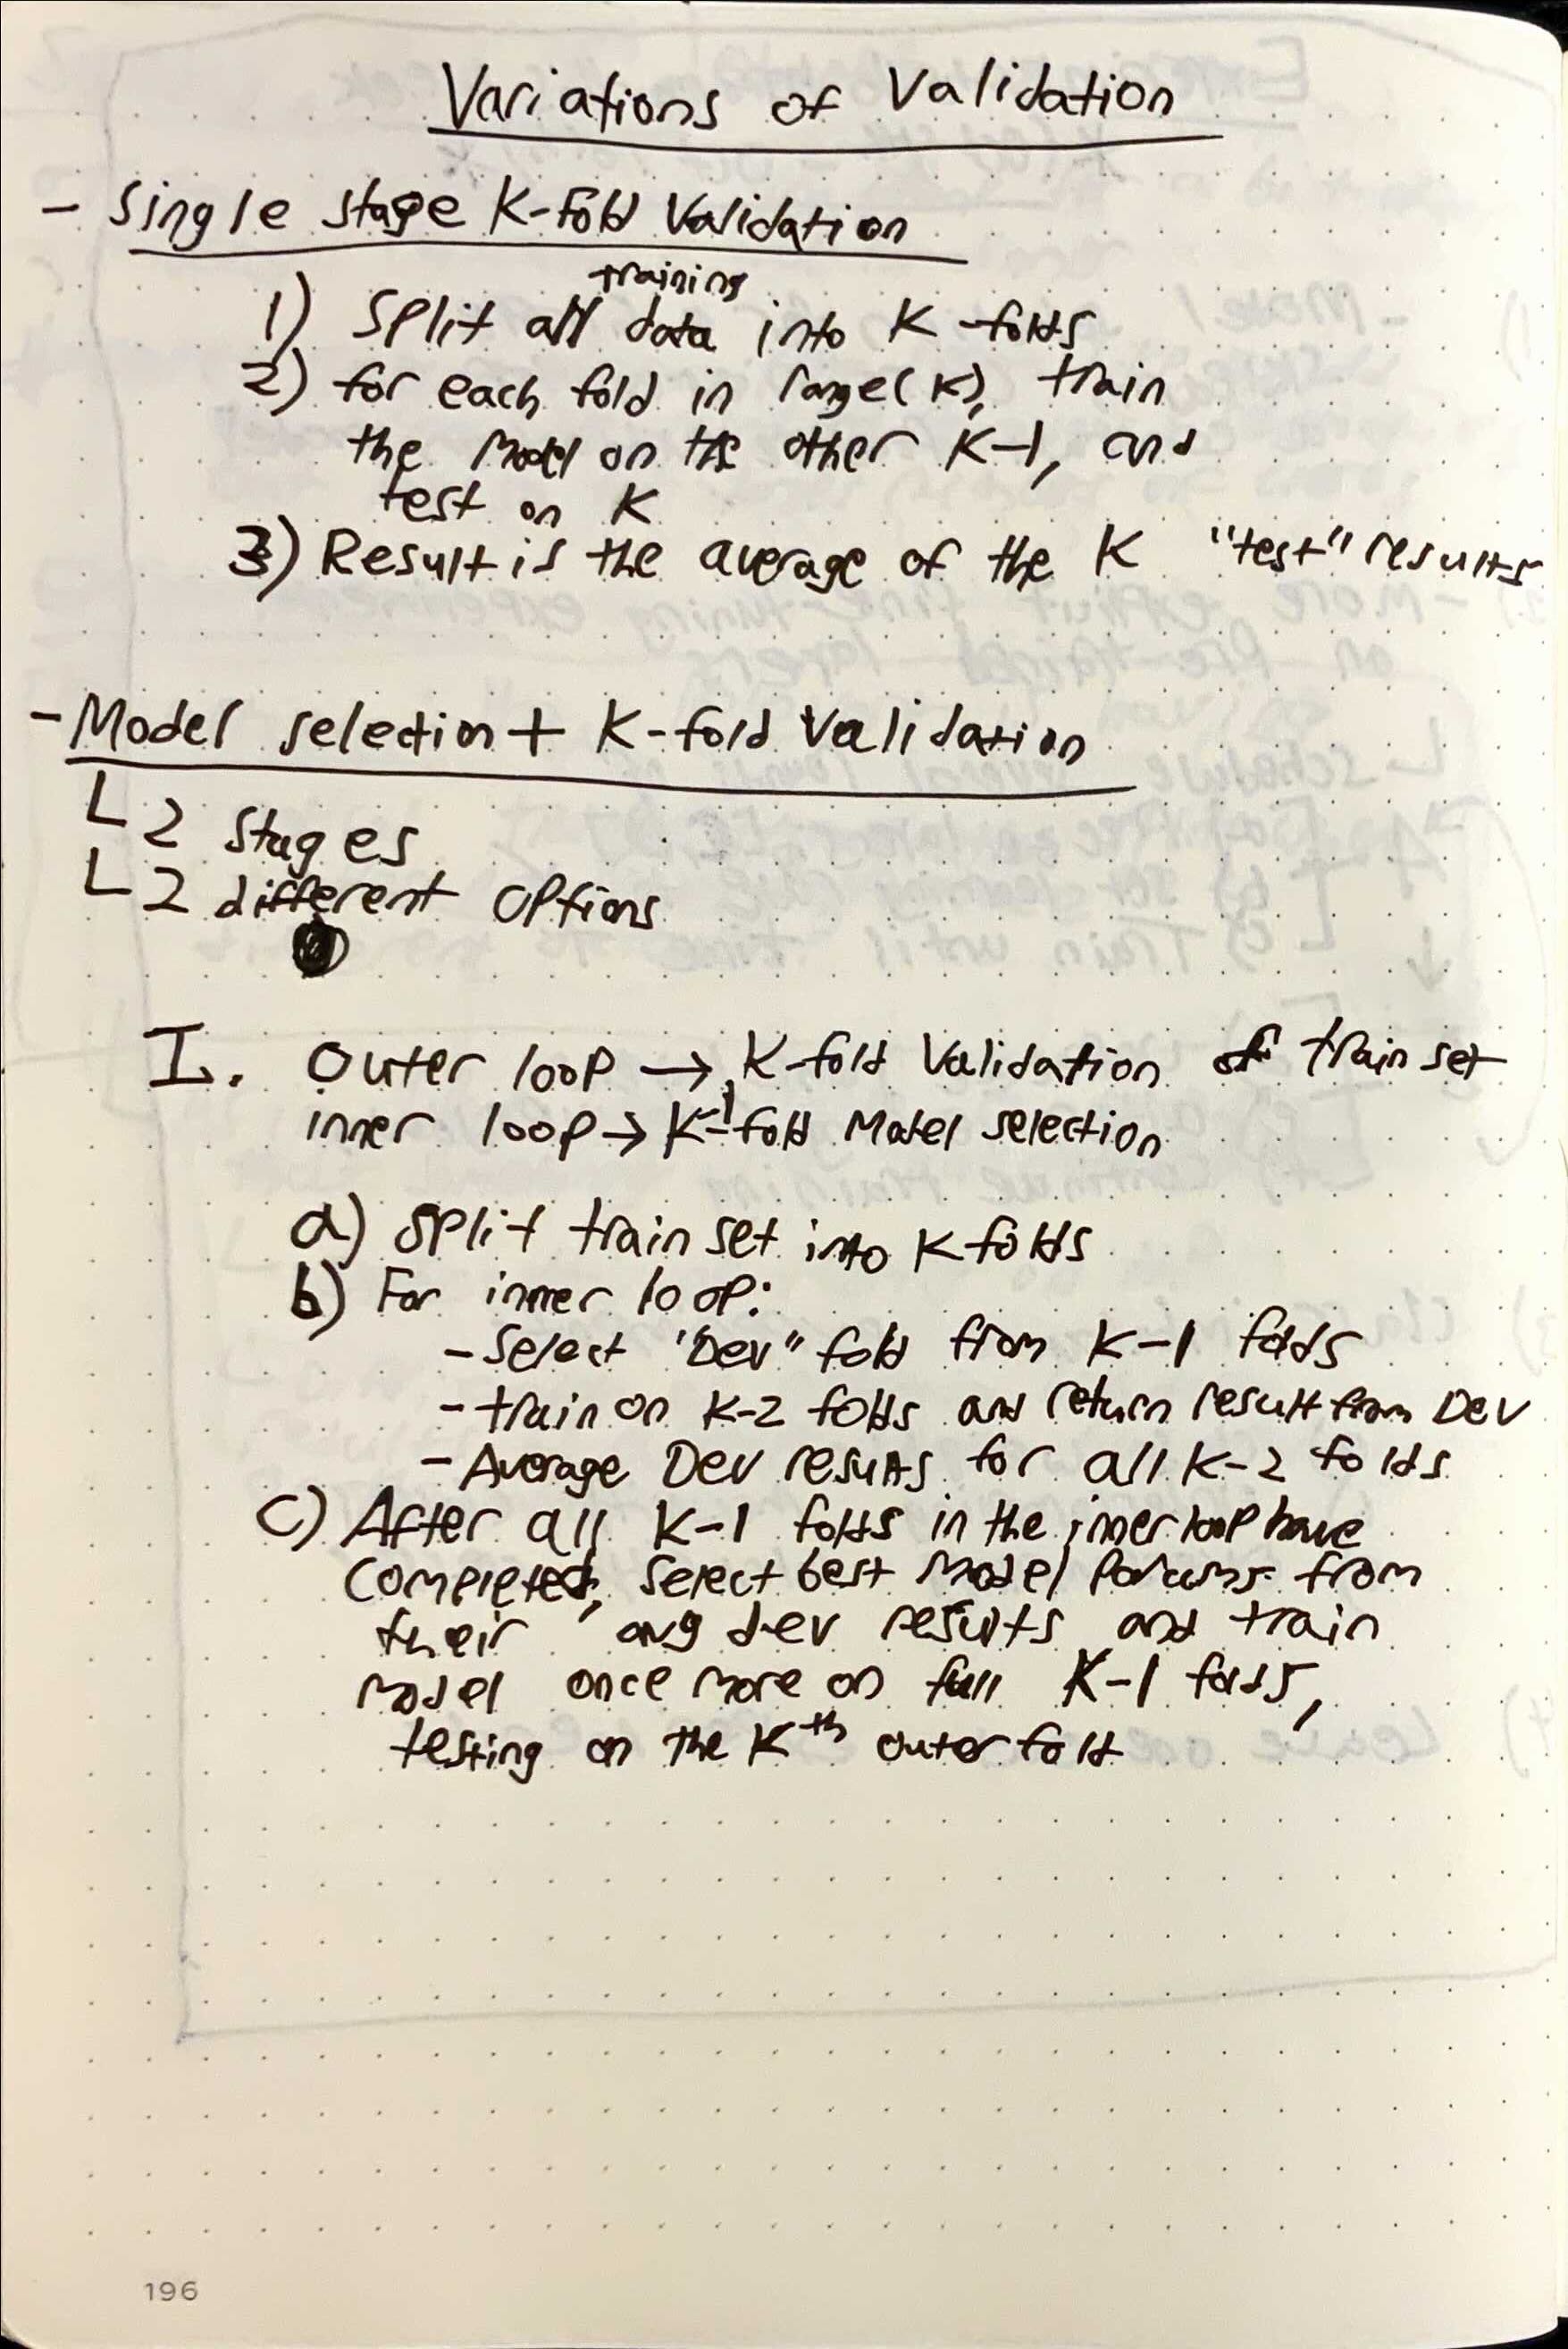 Variations of Validation
- Single stage K-fold Validation
training
1) Split all data into K-folds
2) for each fold in range(K), train
the model on the other K-1, and
test on K
3) Result is the average of the K "test" results
- Model selection + K-fold Validation
L 2 stages
L 2 different options
I. Outer loop → K-fold Validation of train set
inner loop → K-1 fold Model selection
a) Split train set into K folds
b) For inner loop:
- Select "Dev" fold from K-1 folds
- train on K-2 folds and return result from Dev
- Average Dev results for all K-2 folds
c) After all K-1 folds in the inner loop have
completed, select best model params from
their avg dev results and train
model once more on full K-1 folds,
testing on the Kth outer fold
196